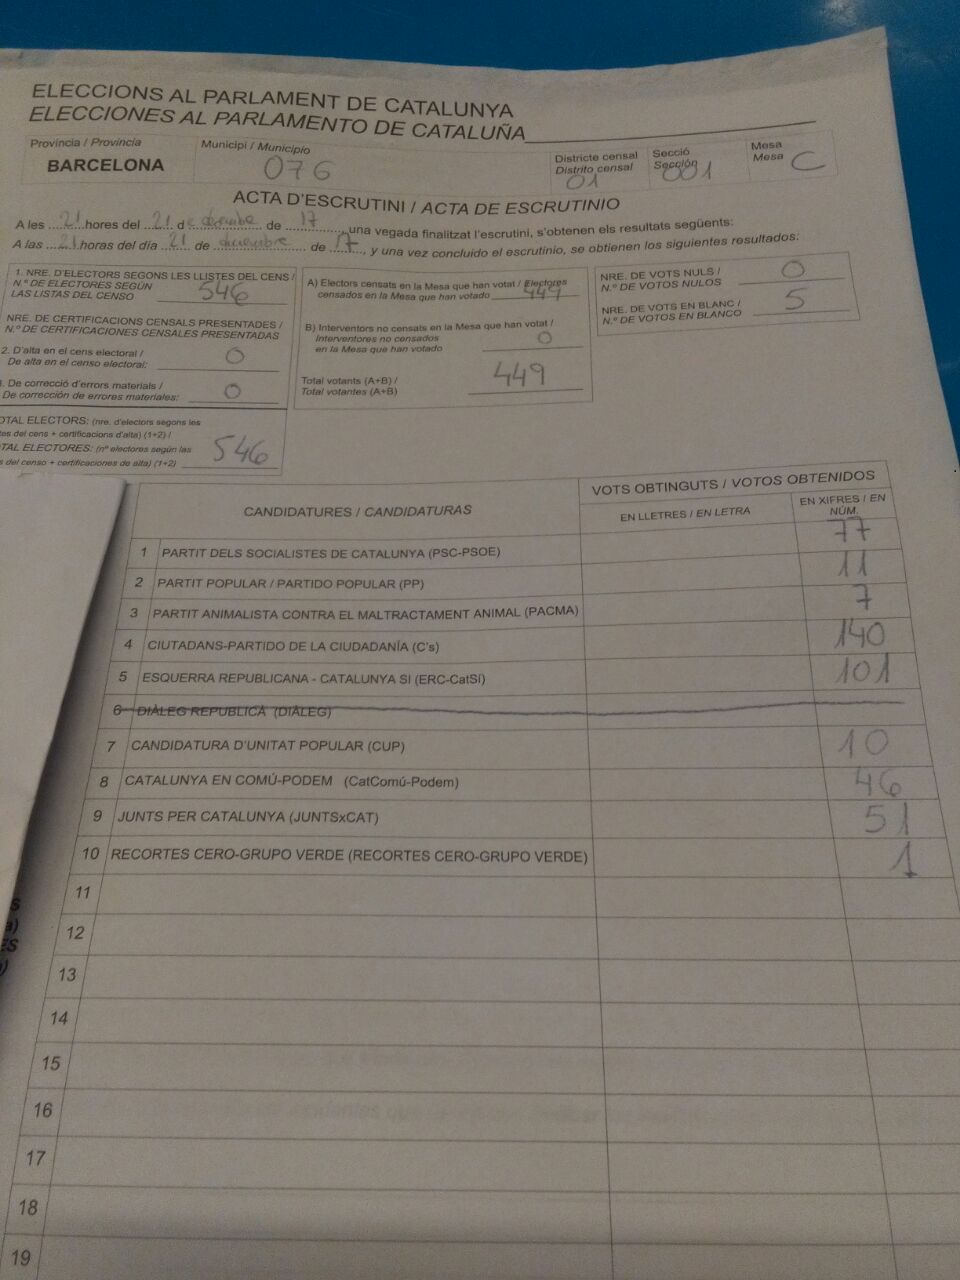 ELECCIONS AL PARLAMENT DE CATALUNYA
ELECCIONES AL PARLAMENTO DE CATALUÑA
Província / Provincia
BARCELONA
Municipi / Municipio
076
Districte censal
Distrito censal
01
Secció
Sección
001
Mesa
Mesa
C
ACTA D'ESCRUTINI / ACTA DE ESCRUTINIO
A les 21 hores del 21 de diciembre de 17, una vegada finalitzat l'escrutini, s'obtenen els resultats següents:
A las 21 horas del día 21 de diciembre de 17, y una vez concluido el escrutinio, se obtienen los siguientes resultados:
1. NRE. D'ELECTORS SEGONS LES LLISTES DEL CENS /
N.º DE ELECTORES SEGÚN
LAS LISTAS DEL CENSO
546
NRE. DE CERTIFICACIONS CENSALS PRESENTADES /
N.º DE CERTIFICACIONES CENSALES PRESENTADAS
2. D'alta en el cens electoral /
De alta en el censo electoral:
0
. De correcció d'errors materials /
De corrección de errores materiales:
0
OTAL ELECTORS: (nre. d'electors segons les
es del cens + certificacions d'alta) (1+2) /
TAL ELECTORES: (nº electores según las
s del censo + certificaciones de alta) (1+2)
546
A) Electors censats en la Mesa que han votat / Electores
censados en la Mesa que han votado
449
B) Interventors no censats en la Mesa que han votat /
Interventores no censados
en la Mesa que han votado
0
Total votants (A+B) /
Total votantes (A+B)
449
NRE. DE VOTS NULS /
N.º DE VOTOS NULOS
0
NRE. DE VOTS EN BLANC /
N.º DE VOTOS EN BLANCO
5
CANDIDATURES / CANDIDATURAS
VOTS OBTINGUTS / VOTOS OBTENIDOS
EN LLETRES / EN LETRA
EN XIFRES / EN
NÚM.
1 PARTIT DELS SOCIALISTES DE CATALUNYA (PSC-PSOE) 77
2 PARTIT POPULAR / PARTIDO POPULAR (PP) 11
3 PARTIT ANIMALISTA CONTRA EL MALTRACTAMENT ANIMAL (PACMA) 7
4 CIUTADANS-PARTIDO DE LA CIUDADANÍA (C's) 140
5 ESQUERRA REPUBLICANA - CATALUNYA SI (ERC-CatSí) 101
6 DIÀLEG REPUBLICÀ (DIÀLEG)
7 CANDIDATURA D'UNITAT POPULAR (CUP) 10
8 CATALUNYA EN COMÚ-PODEM (CatComú-Podem) 46
9 JUNTS PER CATALUNYA (JUNTSxCAT) 51
10 RECORTES CERO-GRUPO VERDE (RECORTES CERO-GRUPO VERDE) 1
11
12
13
14
15
16
17
18
19